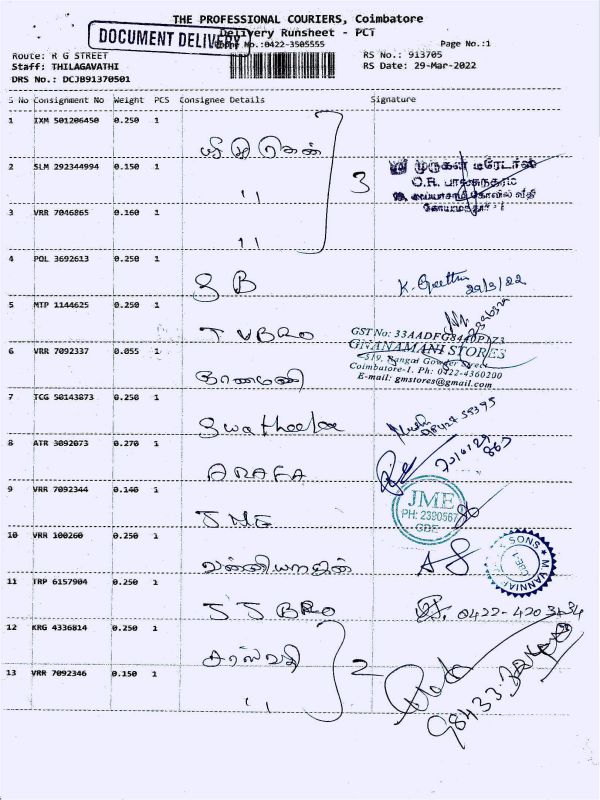 THE PROFESSIONAL COURIERS, Coimbatore
DOCUMENT DELIVERY
Delivery Runsheet - PCT
Phone No.:0422-3505555
Page No.:1
Route: R G STREET
RS No.: 913705
Staff: THILAGAVATHI
RS Date: 29-Mar-2022
DRS No.: DCJB91370501
S No Consignment No Weight PCS Consignee Details Signature
1 IXM 501206450 0.250 1
2 SLM 292344994 0.150 1 ,, 3
ஸ்ரீ முருகன் டிரேடர்ஸ்
3 VRR 7046865 0.160 1 ,,
4 POL 3692613 0.250 1 S B K. Geetha 29/3/22
5 MTP 1144625 0.250 1 T V BRO
GST No: 33AADFG8440P1Z3
GNANAMANI STORES
519, Rangai Gowder Street
Coimbatore-1. Ph: 0422-4360200
E-mail: gmstores@gmail.com
6 VRR 7092337 0.055 1 ஞானமணி
7 TCG 50143873 0.250 1
8 ATR 3092073 0.270 1 ARAFA
9 VRR 7092344 0.140 1 J M E
JME
PH: 2390567
CBE
10 VRR 100260 0.250 1
11 TRP 6157904 0.250 1 J J BRO 0422-420 3434
12 KRG 4336814 0.250 1 சரஸ்வதி 2
13 VRR 7092346 0.150 1 ,,